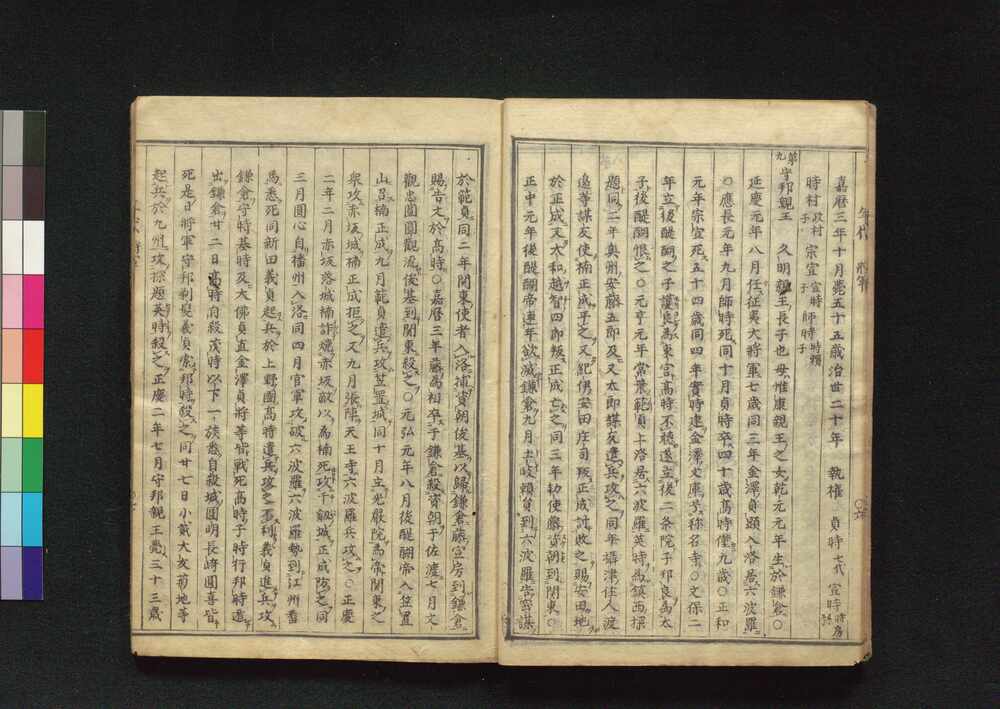 嘉曆三年十月薨五十五歳治世二十年　執權　貞時七代　宣時時房孫
時村政村子　宗宣宣時子　師時時頼子
第九　守邦親王　久明親王長子也母惟康親王之女乾元元年生於鎌倉○
延慶元年八月任征夷大將軍七歳同三年金澤貞顕入洛居六波羅
○應長元年九月師時死同十月貞時卒四十歳高時僅九歳○正和
元年宗宣死五十四歳同四年實時建金澤文庫号称名寺○文保二
年立後醍醐之子護良為東宮高時不穏遂立後二条院子邦良為太
子後醍醐恨之○元亨元年常葉範貞上洛居六波羅英時為鎮西探
題同二年奥州安藤五郎及又太郎謀反遣兵攻之同年攝津住人渡
邉等謀友使楠正成平之又紀伊安田庄司叛正成討敗之賜安田地
於正成又大和越智四郎叛正成亡之同三年勅使藤資朝到関東○
正中元年後醍醐帝連年欲滅鎌倉九月土岐頼貟到六波羅告密謀
於範貞同二年関東使者入洛捕資朝俊基以歸鎌倉藤宣房到鎌倉
賜告文於高時○嘉曆三年藤為相卒于鎌倉殺資朝于佐渡七月文
觀忠圓圓觀流俊基到関東殺之○元弘元年八月後醍醐帝入笠置
山召楠正成九月範貞遣兵攻笠置城同十月立光嚴院為帝関東之
衆攻赤坂城楠正成拒之又九月張陣天王寺六波羅兵攻之○正慶
二年二月赤坂落城楠詐燒赤坂敵以為楠死攻千劔城正成防之同
三月圓心自播州入洛同四月官軍攻破六波羅六波羅勢到江州番
馬悉死同新田義貞起兵於上野國高時遣兵攻之不利義貞進兵攻
鎌倉守時基時及大佛貞直金澤貞將等皆戰死高時子時行邦時遁
出鎌倉廿二日高時自殺茂時以下一族悉自殺城圓明長崎圓喜皆
死是日將軍守邦剃髪義貞索邦時殺之同廿七日小貳大友菊地等
起兵於九州攻探題英時殺之正慶二年七月守邦親王薨三十三歳